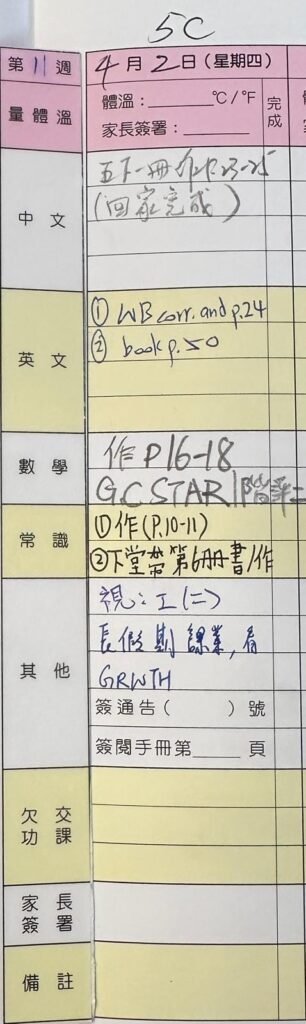 5C
第 11 週
4 月 2 日 (星期四)
量體溫
體溫：______ °C/°F
家長簽署：______
完成
中文
五下一冊作P.23-25
(回家完成)
英文
① WB corr. and p.24
② book p.50
數學
作 P16-18
G.C STAR 階評二
常識
① 作(P.10-11)
②下堂帶第6冊書/作
其他
視：工(二)
長假期課業，看
GRWTH
簽通告( ) 號
簽閱手冊第____頁
欠交功課
家長簽署
備註